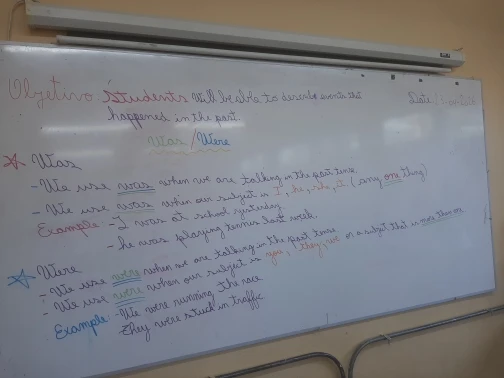 Objetivo Students will be able to describe events that
happened in the past.
Date
Was/Were
Was
- We use was when we are talking in the past tense.
- We use was when our subject is I, he, she, it (any one thing)
Example - I was at school yesterday.
- he was playing tennis last week.
Were
- We use were when we are talking in the past tense
- We use were when our subject is you, they, we or a subject that is more than one
Example - We were running the race
- They were stuck in traffic